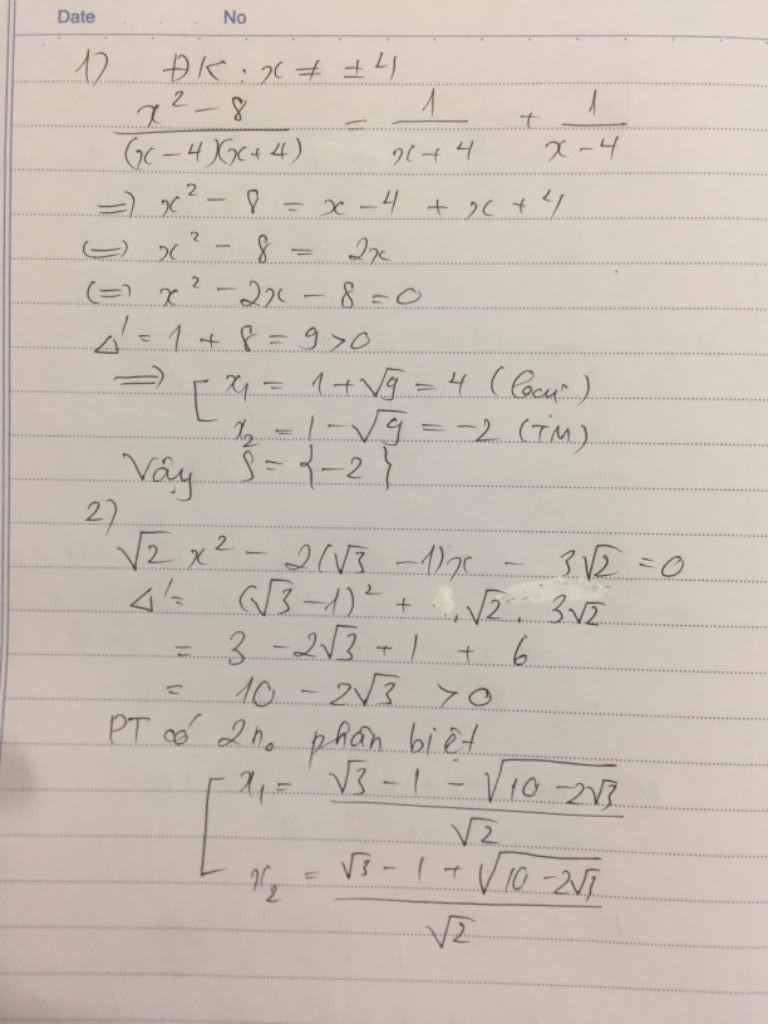 Date No
1) ĐK: x ≠ ±4
x² - 8 / (x - 4)(x + 4) = 1 / x + 4 + 1 / x - 4
=> x² - 8 = x - 4 + x + 4
(=) x² - 8 = 2x
(=) x² - 2x - 8 = 0
Δ' = 1 + 8 = 9 > 0
=> [ x₁ = 1 + √9 = 4 (loại)
x₂ = 1 - √9 = -2 (TM)
Vậy S = { -2 }
2)
√2 x² - 2(√3 - 1)x - 3√2 = 0
Δ' = (√3 - 1)² + . √2 . 3√2
= 3 - 2√3 + 1 + 6
= 10 - 2√3 > 0
PT có 2 n₀ phân biệt
[ x₁ = √3 - 1 - √10 - 2√3 / √2
x₂ = √3 - 1 + √10 - 2√3 / √2